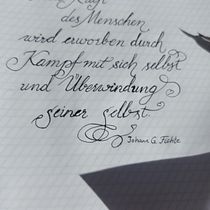 Kraft
des Menschen
wird erworben durch
Kampf mit sich selbst
und Überwindung
seiner selbst.
Johann G. Fichte